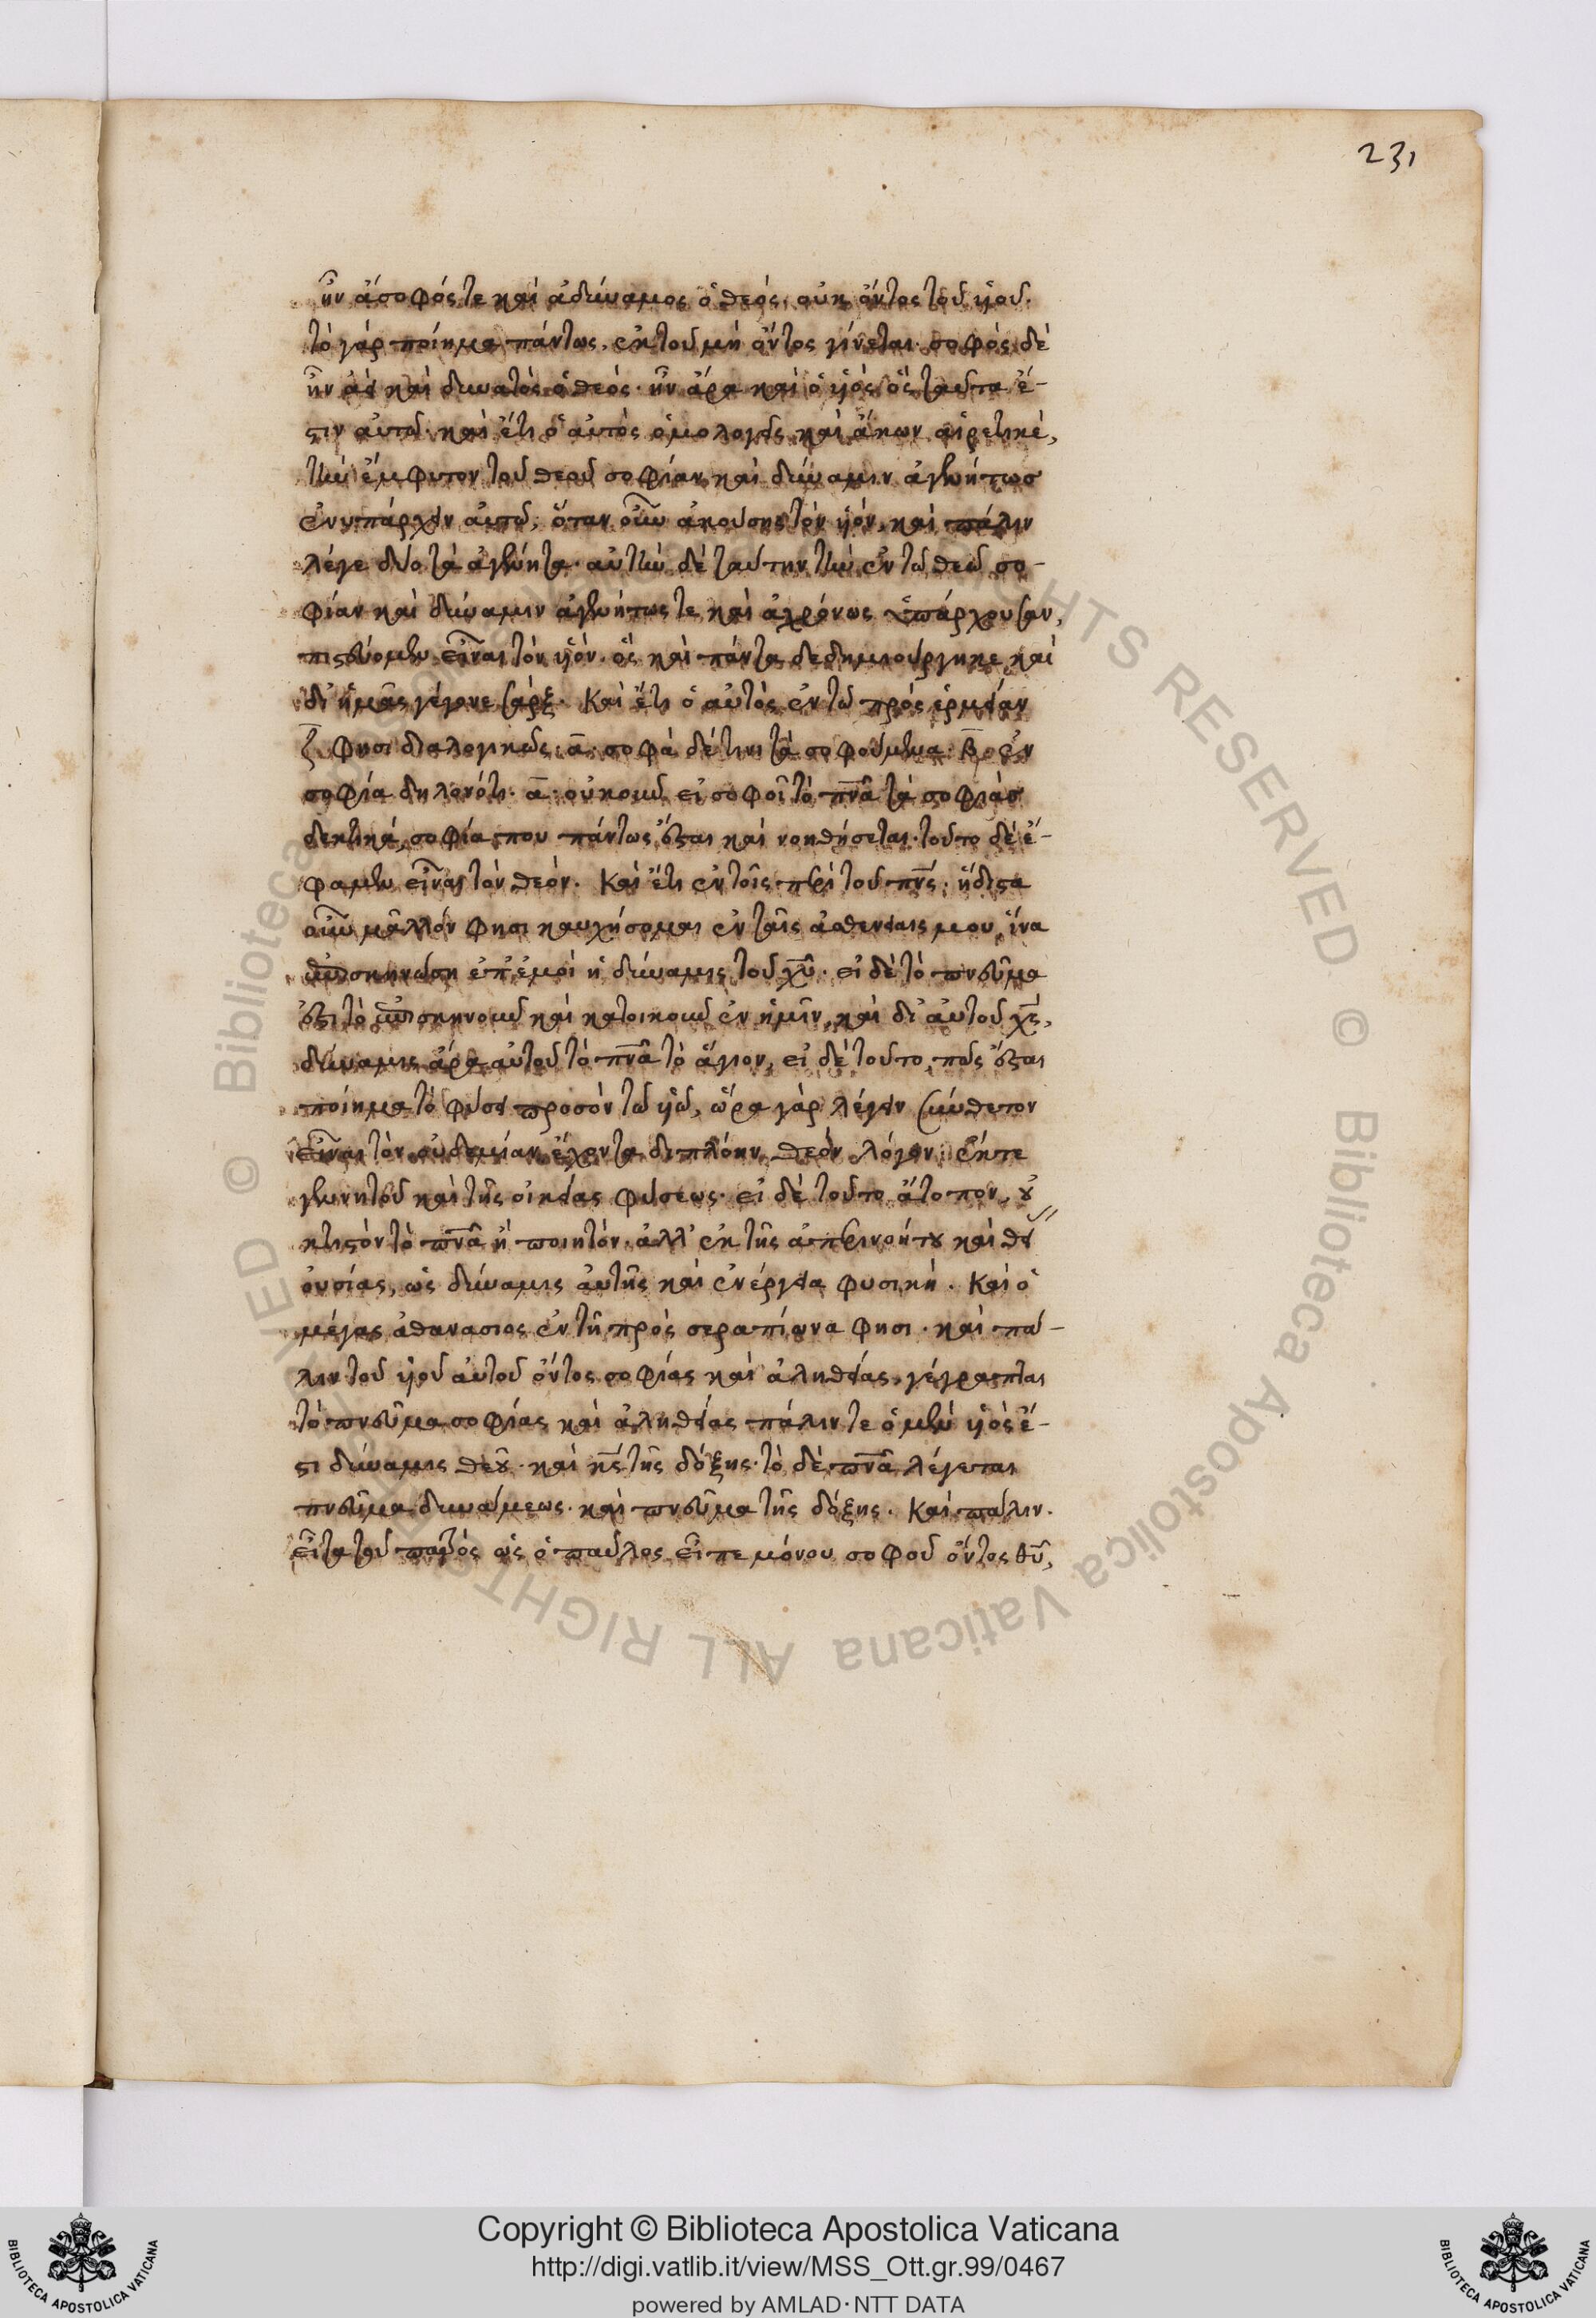 231
ἦν ἄσοφός τε καὶ ἀδύναμος ὁ θεός, οὐκ ὄντος τοῦ υἱοῦ.
τὸ γὰρ ποίημα πάντως, ἐκ τοῦ μὴ ὄντος γίνεται. σοφὸς δὲ
ἦν ἀεὶ καὶ δυνατὸς ὁ θεός. ἦν ἄρα καὶ ὁ υἱὸς ὃς ταῦτα ἐ-
στιν αὐτῶ. καὶ ἔτι ὁ αὐτὸς ὁμολογεῖς καὶ ἄκων αἱρετικὲ,
τὴν ἔμφυτον τοῦ θεοῦ σοφίαν καὶ δύναμιν ἀγενήτως
ἐνυπάρχειν αὐτῶ, ὅταν οὖν ἀκούσης τὸν υἱόν, καὶ πάλιν
λέγε δύο τὰ ἀγένητα. αὐτὴν δὲ ταύτην τὴν ἐν τῶ θεῶ σο-
φίαν καὶ δύναμιν ἀγενήτως τε καὶ ἀχρόνως ὑπάρχουσαν,
πιστεύομεν εἶναι τὸν υἱόν. ὃς καὶ πάντα δεδημιούργηκε καὶ
δι' ἡμᾶς γέγονε σάρξ. Καὶ ἔτι ὁ αὐτὸς ἐν τῶ πρὸς ἑρμείαν
ζ̅ φησι διαλογικῶς. α̅. σοφὰ δέ τινι τὰ σοφούμενα. β̅. ἐν
σοφία δηλονότι. α̅. οὐκοῦν εἰ σοφοῖ τὸ πν̅α τὰ σοφίας
δεκτικά, σοφία που πάντως ἔσται καὶ νοηθήσεται. τοῦτο δὲ ἔ-
φαμεν εἶναι τὸν θεόν. Καὶ ἔτι ἐν τοῖς περὶ τοῦ πν̅ς. ἥδιστα
οὖν μᾶλλόν φησι καυχήσομαι ἐν ταῖς ἀσθενείαις μου, ἵνα
ἐπισκηνώση ἐπ' ἐμοὶ ἡ δύναμις τοῦ χ̅υ. εἰ δὲ τὸ πνεῦμα
ἐστὶ τὸ ἐπισκηνοῦν καὶ κατοικοῦν ἐν ἡμῖν, καὶ δι' αὐτοῦ χ̅ς,
δύναμις ἄρα αὐτοῦ τὸ πν̅α τὸ ἅγιον, εἰ δὲ τοῦτο, πῶς ἔσται
ποίημα τὸ φύσει προσὸν τῶ υἱῶ, ὥρα γὰρ λέγειν σύνθετον
εἶναι τὸν οὐδεμίαν ἔχοντα διπλόην θεὸν λόγον. ἔκ τε
γενητοῦ καὶ τῆς οἰκείας φύσεως. εἰ δὲ τοῦτο ἄτοπον, οὐ
κτιστὸν τὸ πν̅α ἢ ποιητόν. ἀλλ' ἐκ τῆς ἀπερινοήτου καὶ θεί
οὐσίας, ὡς δύναμις αὐτῆς καὶ ἐνέργεια φυσική. Καὶ ὁ
μέγας ἀθανασιος ἐν τῆ πρὸς σεραπίωνα φησι. καὶ πά-
λιν τοῦ υἱοῦ αὐτοῦ ὄντος σοφίας καὶ ἀληθείας, γέγραπται
τὸ πνεῦμα σοφίας καὶ ἀληθείας πάλιν τε ὁ μὲν υἱὸς ἐ-
στι δύναμις θεοῦ. καὶ κ̅ς τῆς δόξης. τὸ δὲ πν̅α λέγεται
πνεῦμα δυνάμεως. καὶ πνεῦμα τῆς δόξης. Καὶ πάλιν.
εἶτα τοῦ πατρὸς ὡς ὁ παῦλος εἶπε μόνου σοφοῦ ὄντος θ̅υ,
Copyright © Biblioteca Apostolica Vaticana
http://digi.vatlib.it/view/MSS_Ott.gr.99/0467
powered by AMLAD·NTT DATA
© Biblioteca Apostolica Vaticana ALL RIGHTS RESERVED
BIBLIOTECA APOSTOLICA VATICANA
BIBLIOTECA APOSTOLICA VATICANA